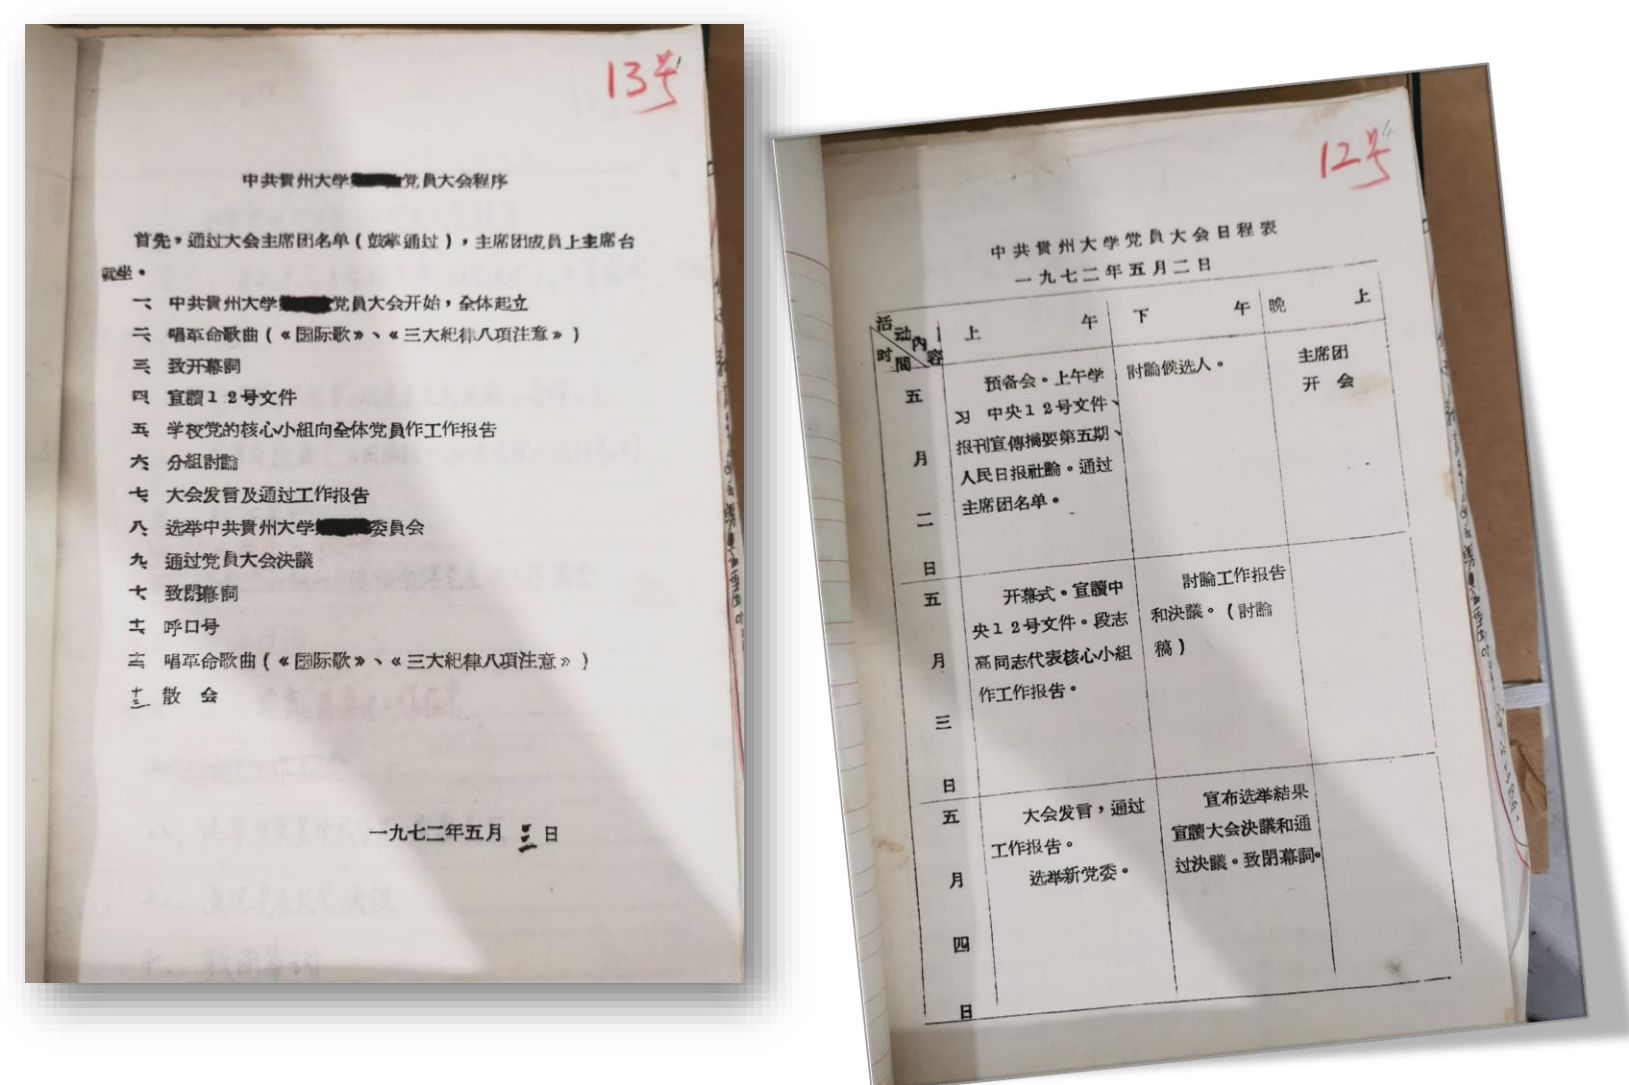 13号
中共貴州大学党員大会程序
首先，通过大会主席团名单(鼓掌通过)，主席团成員上主席台
就坐。
一、中共貴州大学党員大会开始，全体起立
二、唱革命歌曲(《国际歌》、《三大紀律八項注意》)
三、致开幕詞
四、宣讀12号文件
五、学校党的核心小組向全体党員作工作报告
六、分組討論
七、大会发言及通过工作报告
八、选举中共貴州大学委員会
九、通过党員大会決議
十、致閉幕詞
十一、呼口号
十二、唱革命歌曲(《国际歌》、《三大紀律八項注意》)
十三、散 会
一九七二年五月三日
12号
中共貴州大学党員大会日程表
一九七二年五月二日
活动内容
时間
上 午
下 午
晚 上
五月二日
預备会。上午学
习 中央12号文件、
报刊宣傳摘要第五期、
人民日报社論。通过
主席团名单。
討論候选人。
主席团
开 会
五月三日
开幕式。宣讀中
央12号文件。段志
高同志代表核心小組
作工作报告。
討論工作报告
和決議。(討論
稿)
五月四日
大会发言，通过
工作报告。
选举新党委。
宣布选举結果
宣讀大会決議和通
过決議。致閉幕詞。